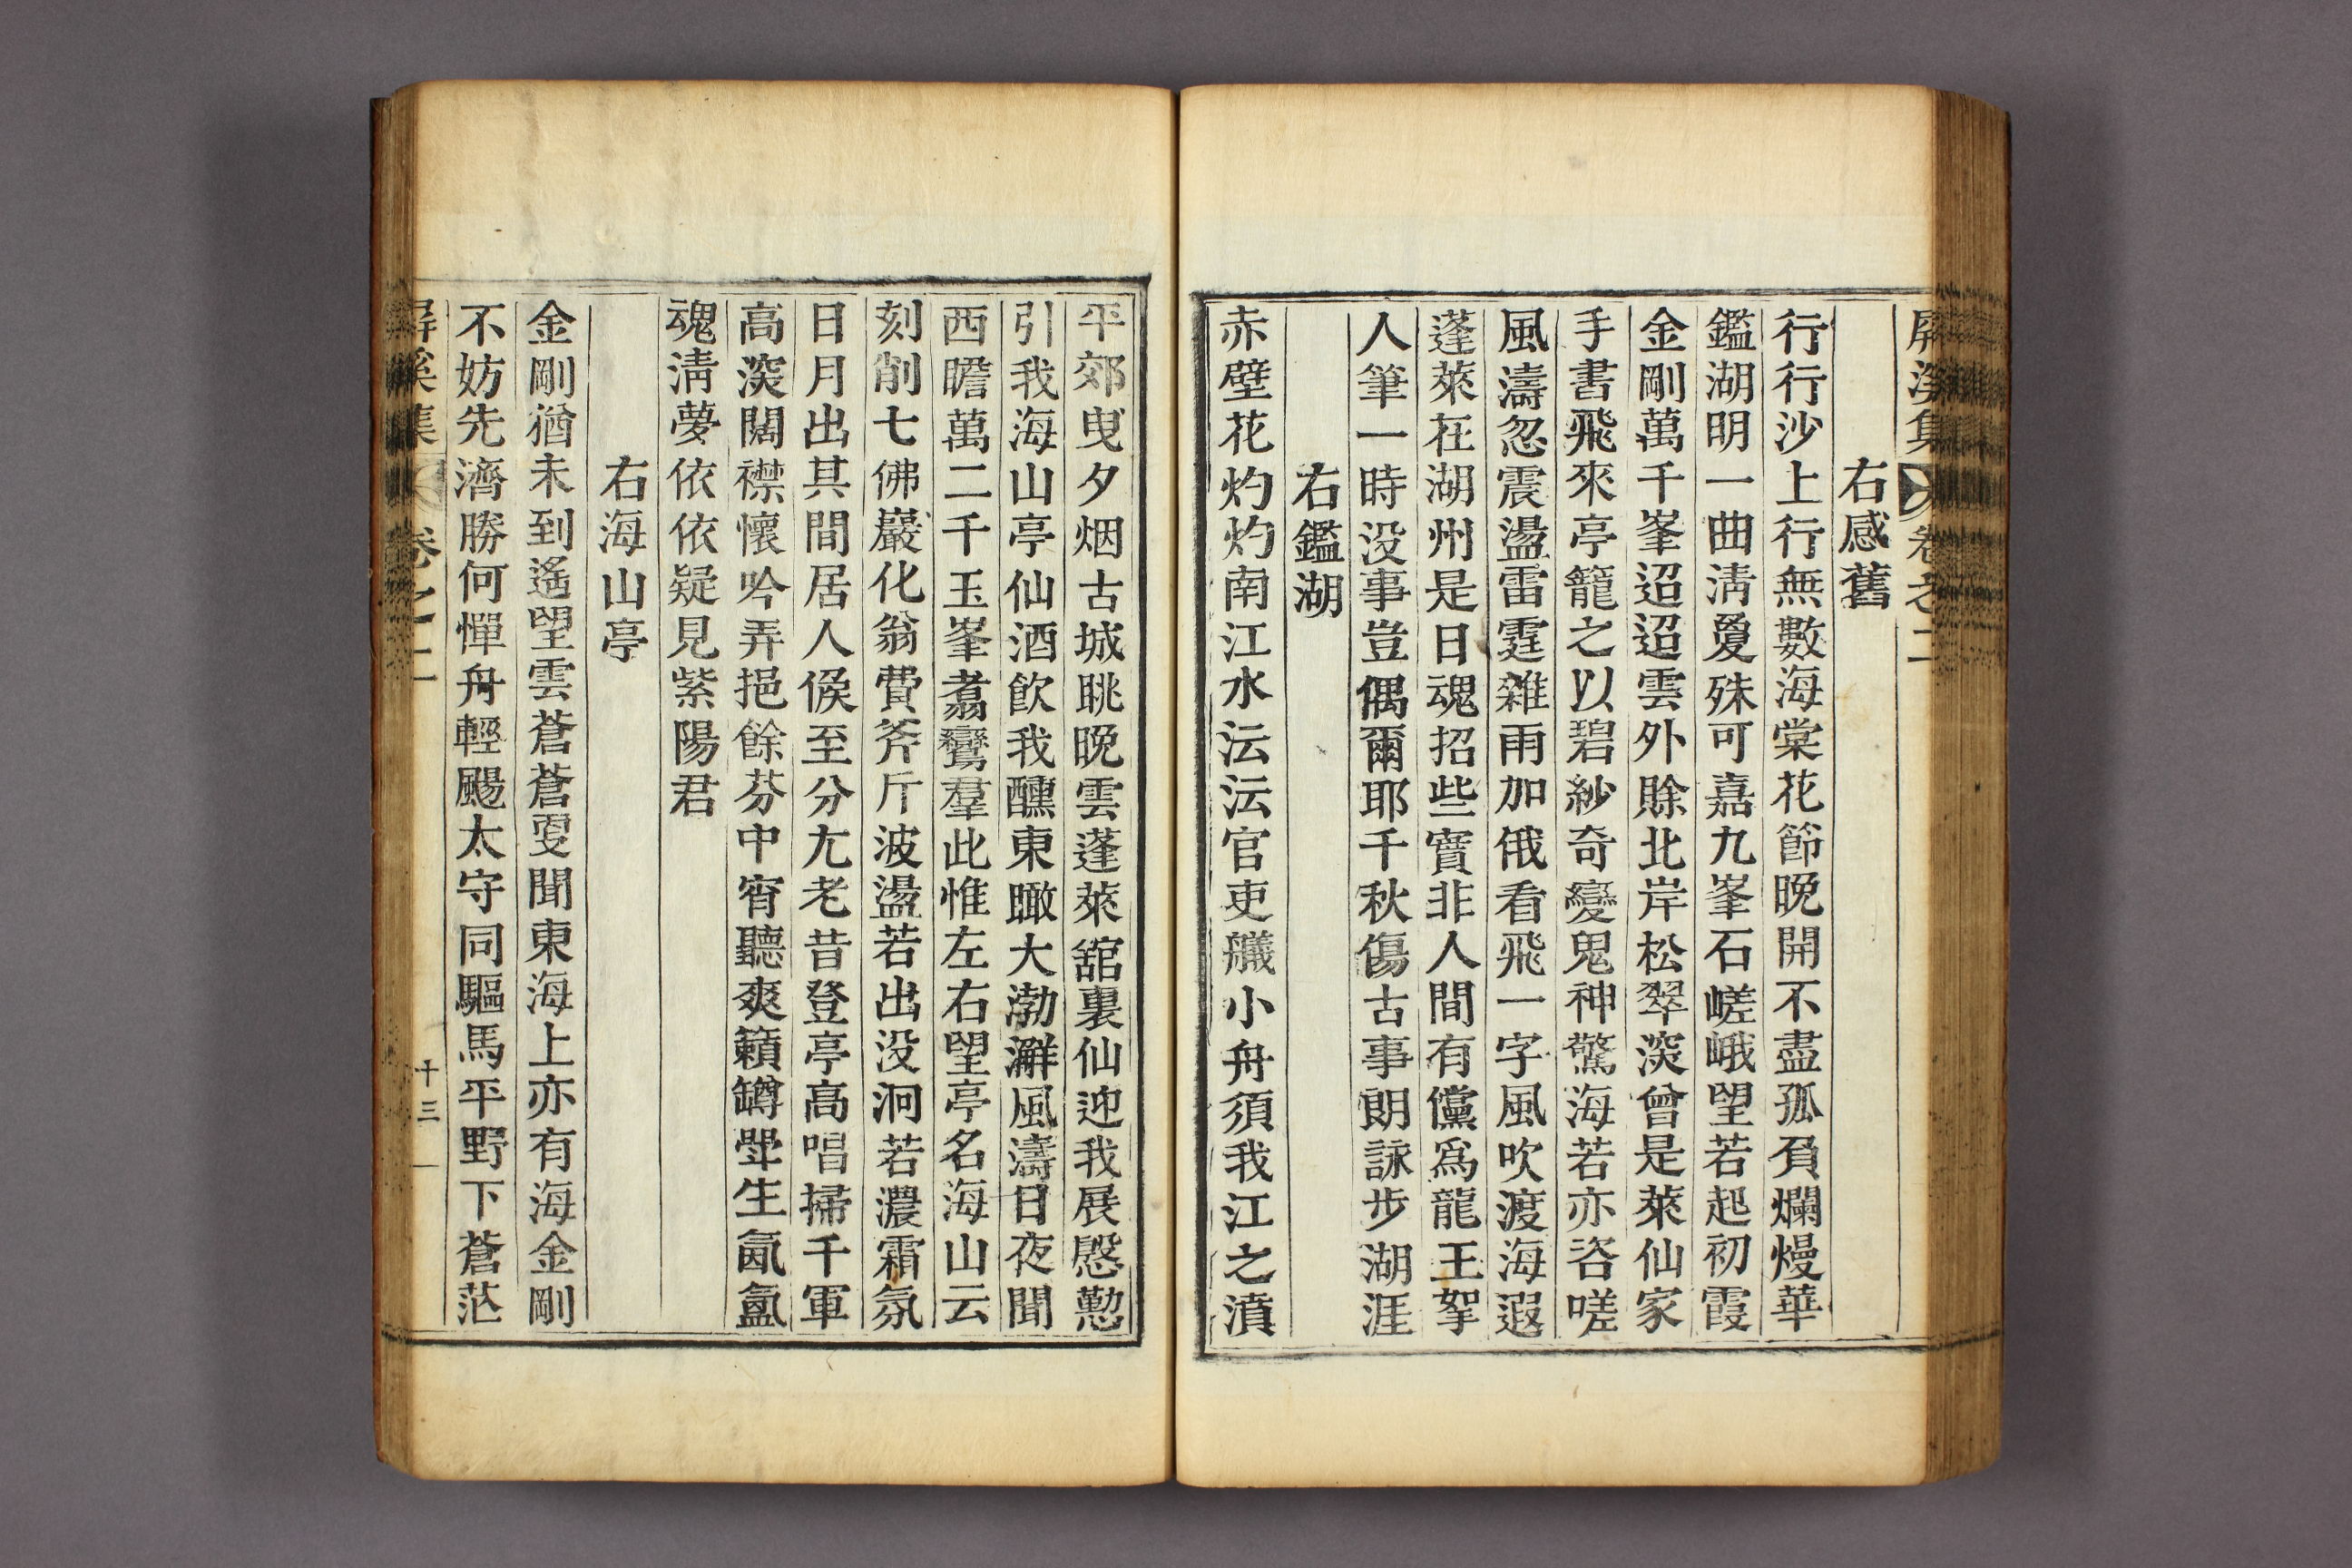 屛溪集 卷之二
右感舊
行行沙上行無數海棠花節晩開不盡孤負爛熳華
鑑湖明一曲淸夐殊可嘉九峯石嵯峨望若起初霞
金剛萬千峯迢迢雲外賖北岸松翠深曾是萊仙家
手書飛來亭籠之以碧紗奇變鬼神驚海若亦咨嗟
風濤忽震盪雷霆雜雨加俄看飛一字風吹渡海遐
蓬萊在湖州是日魂招些寶非人間有儻爲龍王拏
人筆一時没事豈偶爾耶千秋傷古事朗詠步湖涯
右鑑湖
赤壁花灼灼南江水沄沄官吏艤小舟須我江之濆
平郊曳夕烟古城眺晩雲蓬萊舘裏仙迎我展慇懃
引我海山亭仙酒飮我醺東瞰大渤澥風濤日夜聞
西瞻萬二千玉峯翥鸞羣此惟左右望亭名海山云
刻削七佛巖化翁費斧斤波盪若出没泂若濃霜氛
日月出其間居人候至分尢老昔登亭高唱掃千軍
高深闊襟懷吟弄挹餘芬中宵聽爽籟罇斝生氤氳
魂淸夢依依疑見紫陽君
右海山亭
金剛猶未到遙望雲蒼蒼更聞東海上亦有海金剛
不妨先濟勝何憚舟輕颺太守同驅馬平野下蒼茫
屛溪集 卷之二 十三